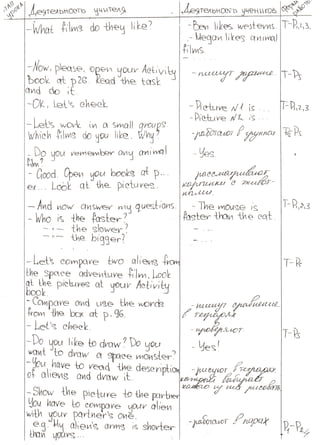 план урока
Деятельность учителя
Деятельность учеников
форма работы
-What films do they like?
-Ben likes westerns.
-Megan likes animal films.
T-P1,2,3.
-Now, please, open your Activity
book at p28. Read the task
and do it.
- пишут задание.
T-Ps
-OK, let's check.
-Picture №1 is ...
-Picture №2 is ...
T-P1,2,3
-Let's work in a small groups.
Which films do you like. Why?
-работают в группах
- Do you remember any animal
film?
-Yes.
- Good. Open you books at p...
er... Look at the pictures.
рассматривают
картинки с живот-
ными.
-And now answer my questions.
- Who is the faster?
-"- the slower?
-"- the bigger?
- The mouse is
faster than the cat.
- ...
- ...
T-P1,2,3
-Let's compare two aliens from
the space adventure film. Look
at the pictures at your Activity
book
T-P
-Compare and use the words
from the box at p.96.
-пишут
в тетрадях
-Let's check.
-проверяют.
T-Ps
-Do you like to draw? Do you
want to draw a space monster?
-Yes!
-You have to read the description
of aliens and draw it.
-рисуют в тетрадях
-Show the picture to the partner
You have to compare your alien
with your partner's one.
e.g. "My alien's arms is shorter
than yours...
-работают в парах